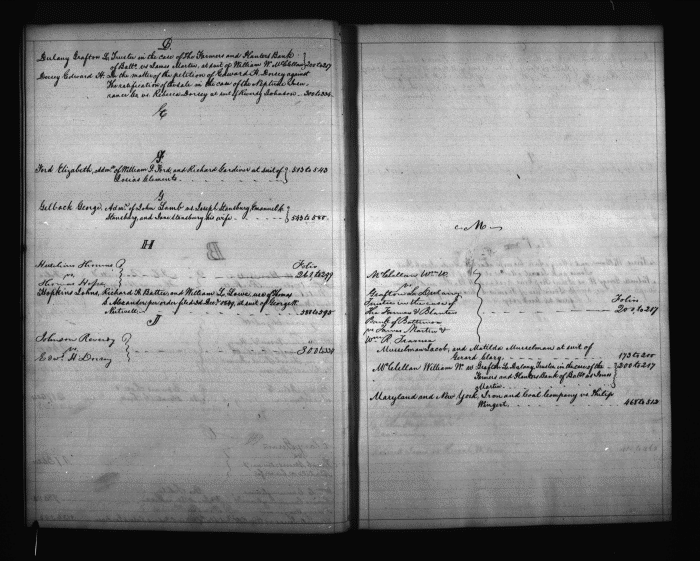 D.
Dulany Grafton L. Trustee in the case of The Farmers and Planters Bank
of Balto. vs James Martin, at suit of William W. McClellan } 200 to 217
Dorsey Edward H. In the matter of the petition of Edward H. Dorsey against
the ratification of the sale in the case of the Neptune Insu-
rance Co. vs Rebecca Dorsey at suit of Reverdy Johnson - 300 to 334.
E
F
Ford Elizabeth, Admx. of William F. Ford, and Richard Gardiner at suit of
Josias Clements } 513 to 543
G
Gelback George, Admr. of John Lamb vs Joseph Stansbury, Emanuel K.
Stansbury, and Jane Stansbury his wife } 543 to 588.
H
Folio
261 to 299
vs
Hopkins Johns, Richard H. Battee, and William L. Lowe, use of Thomas
S. Alexander per order filed 3d Decr. 1849, at suit of George H.
J
Johnson Reverdy
vs
Edwd. H Dorsey } 300 to 334
M
McClellan Wm W.
vs
Grafton L. Dulany
Trustee in the case of
The Farmers & Planters
Bank of Baltimore
vs James Martin &
Wm R. Travers
Folio
200 to 217
Musselman Jacob, and Matilda Musselman at suit of
173 to 200
McClellan William W. vs Grafton L. Dulany, Trustee in the case of the
Farmers and Planters Bank of Balto vs James
Martin } 200 to 217
Maryland and New York Iron and Coal Company vs Philip
Wingert. 465 to 512